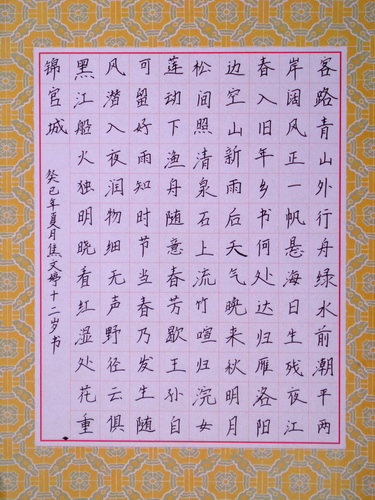 客路青山外行舟绿水前潮平两
岸阔风正一帆悬海日生残夜江
春入旧年乡书何处达归雁洛阳
边空山新雨后天气晚来秋明月
松间照清泉石上流竹喧归浣女
莲动下渔舟随意春芳歇王孙自
可留好雨知时节当春乃发生随
风潜入夜润物细无声野径云俱
黑江船火独明晓看红湿处花重
锦官城
癸巳年夏月焦文婷十二岁书